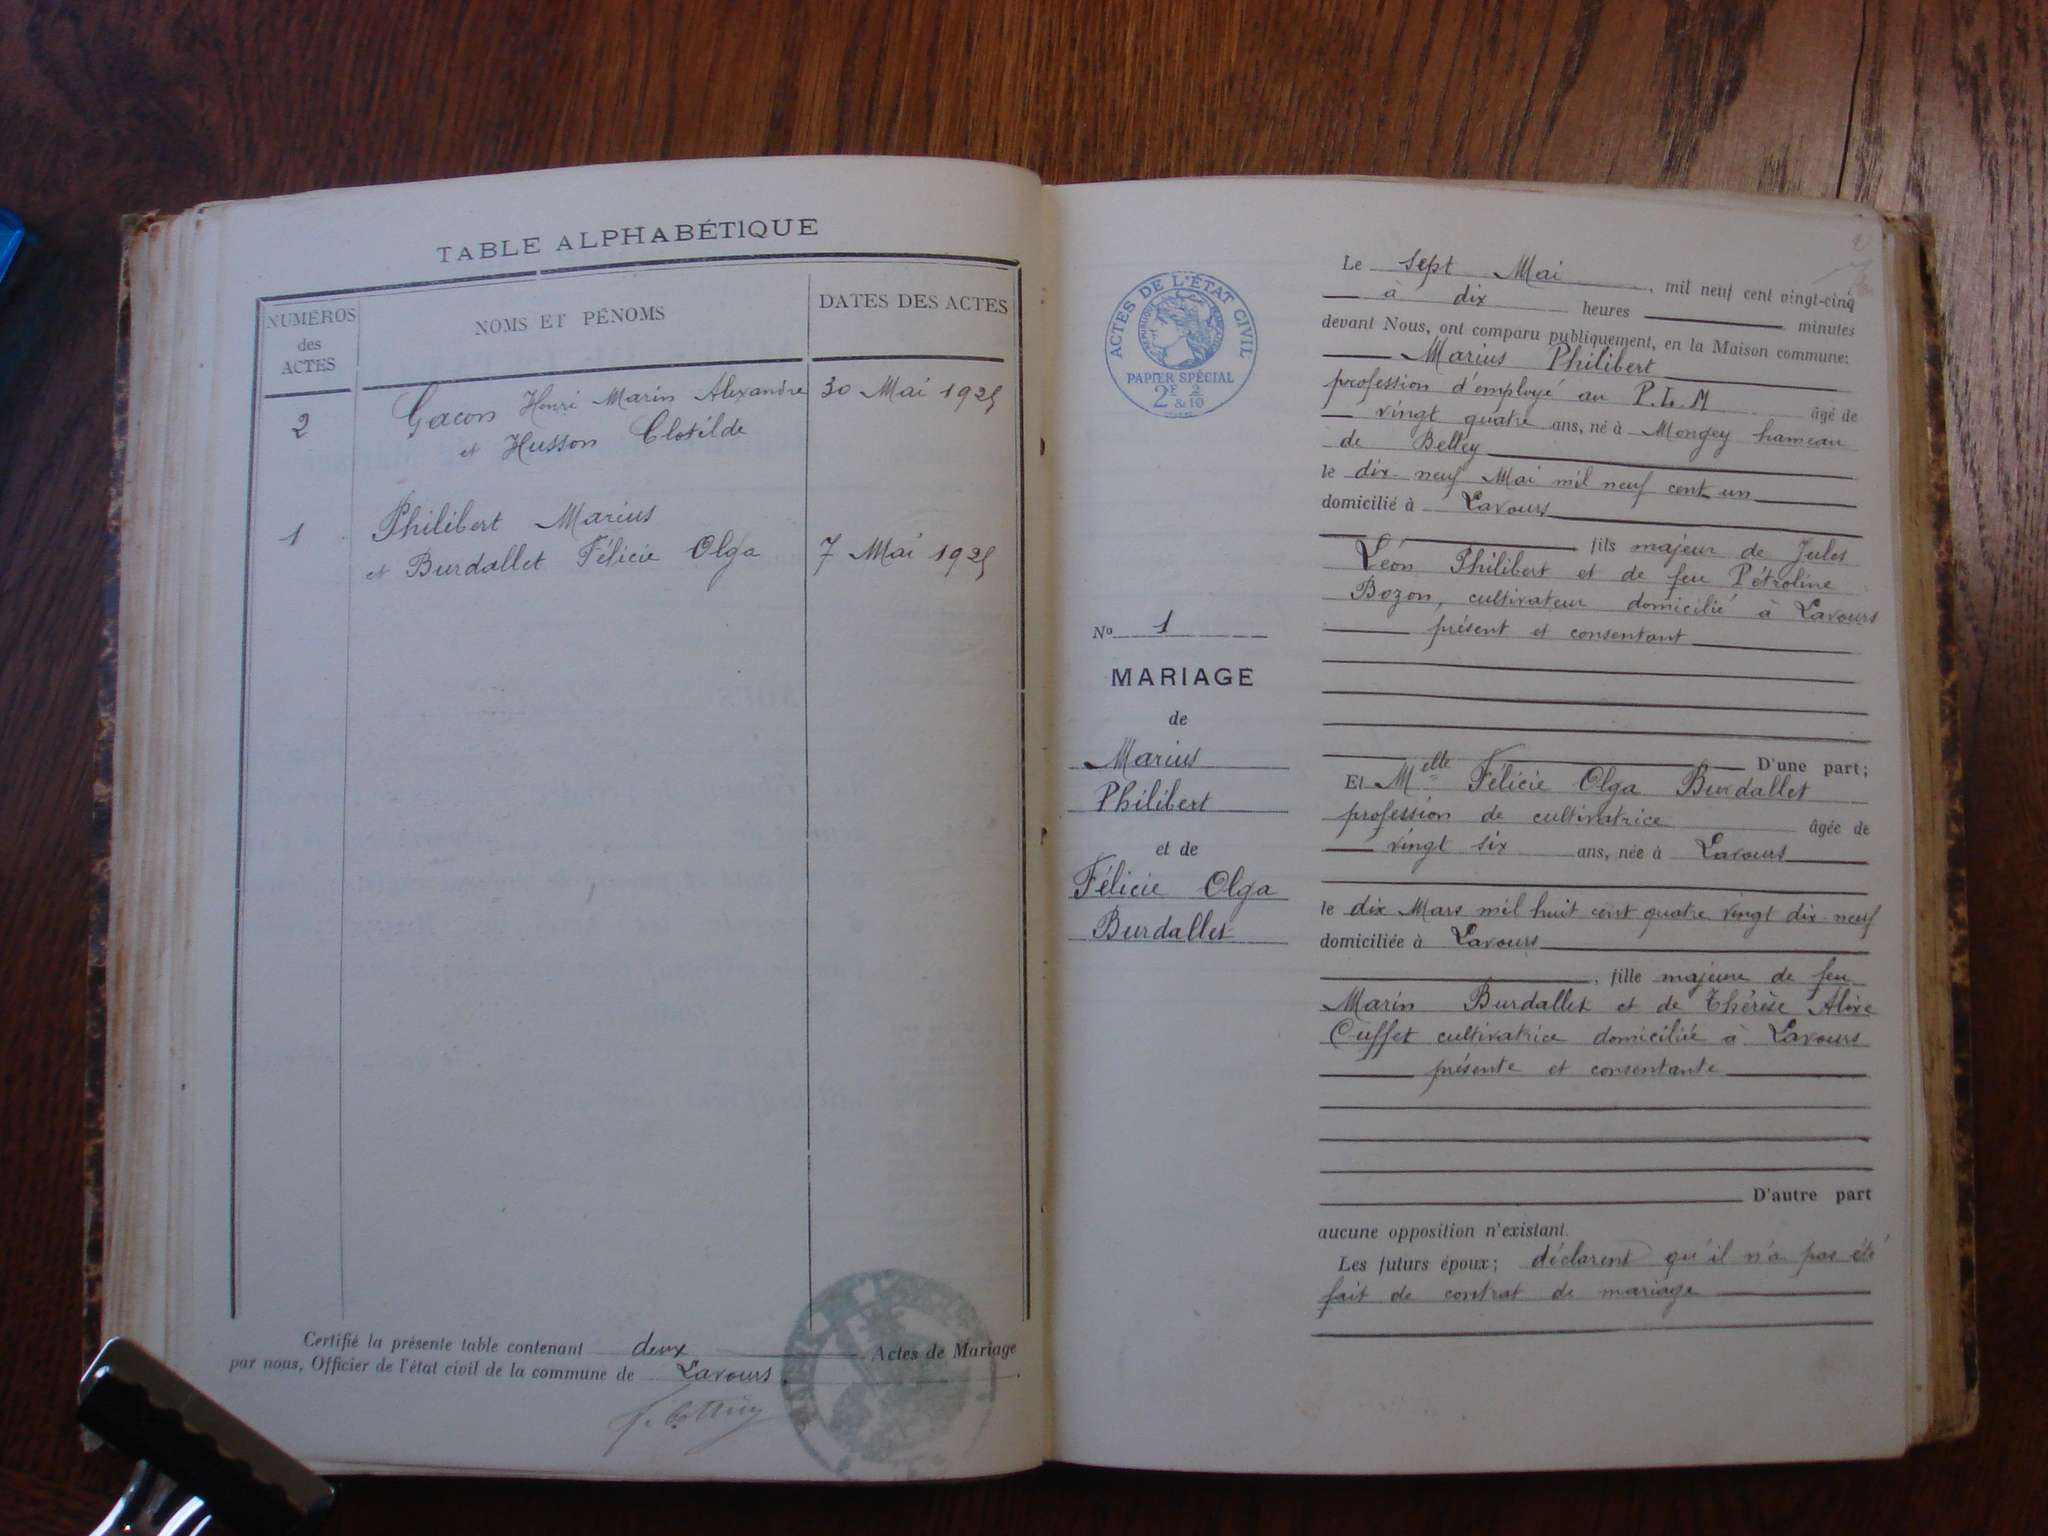 TABLE ALPHABÉTIQUE
NUMÉROS des ACTES
NOMS ET PÉNOMS
DATES DES ACTES
2
Gacon Henri Marin Alexandre
et Husson Clotilde
30 Mai 1925
1
Philibert Marius
et Burdallet Félicie Olga
7 Mai 1925
Certifié la présente table contenant deux Actes de Mariage
par nous, Officier de l'état civil de la commune de Lavours
ACTES DE L'ÉTAT CIVIL
RÉPUBLIQUE FRANÇAISE
PAPIER SPÉCIAL
2F & 2/10
No 1
MARIAGE
de
Marius
Philibert
et de
Félicie Olga
Burdallet
Le sept Mai, mil neuf cent vingt-cinq
à dix heures minutes
devant Nous, ont comparu publiquement, en la Maison commune:
Marius Philibert
profession d'employé au P.L.M âgé de
vingt quatre ans, né à Mongey hameau
de Belley
le dix-neuf Mai mil neuf cent un
domicilié à Lavours
fils majeur de Jules
Léon Philibert et de feu Pétroline
Bozon, cultivateur domicilié à Lavours
présent et consentant
D'une part;
Et Melle Félicie Olga Burdallet
profession de cultivatrice âgée de
vingt six ans, née à Lavours
le dix Mars mil huit cent quatre vingt dix-neuf
domiciliée à Lavours
, fille majeure de feu
Marin Burdallet et de Thérèse Alixe
Cuffet cultivatrice domiciliée à Lavours
présente et consentante
D'autre part
aucune opposition n'existant.
Les futurs époux; déclarent qu'il n'a pas été
fait de contrat de mariage